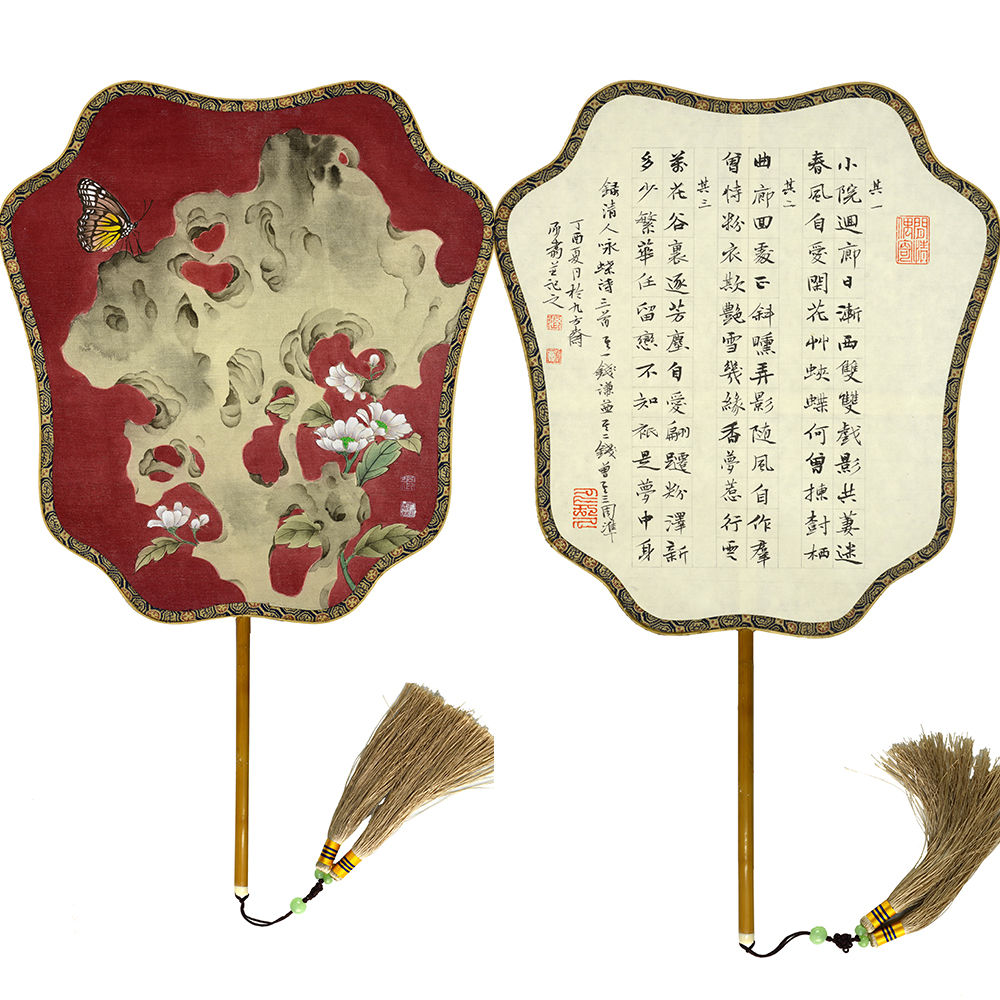 其一
小院迴廊日漸西雙雙戲影共萋迷
春風自受閑花艸蛺蝶何曾揀尌栖
其二
曲廊回處正斜曛弄影随風自作羣
曾恃粉衣欺艷雪幾緣香夢惹行雲
其三
萬花谷裏逐芳塵自愛翩躚粉澤新
多少繁華任留戀不知祇是夢中身
錄清人咏蝶诗三首其一錢谦益其二錢曾其三同準
丁酉夏月於九方齋